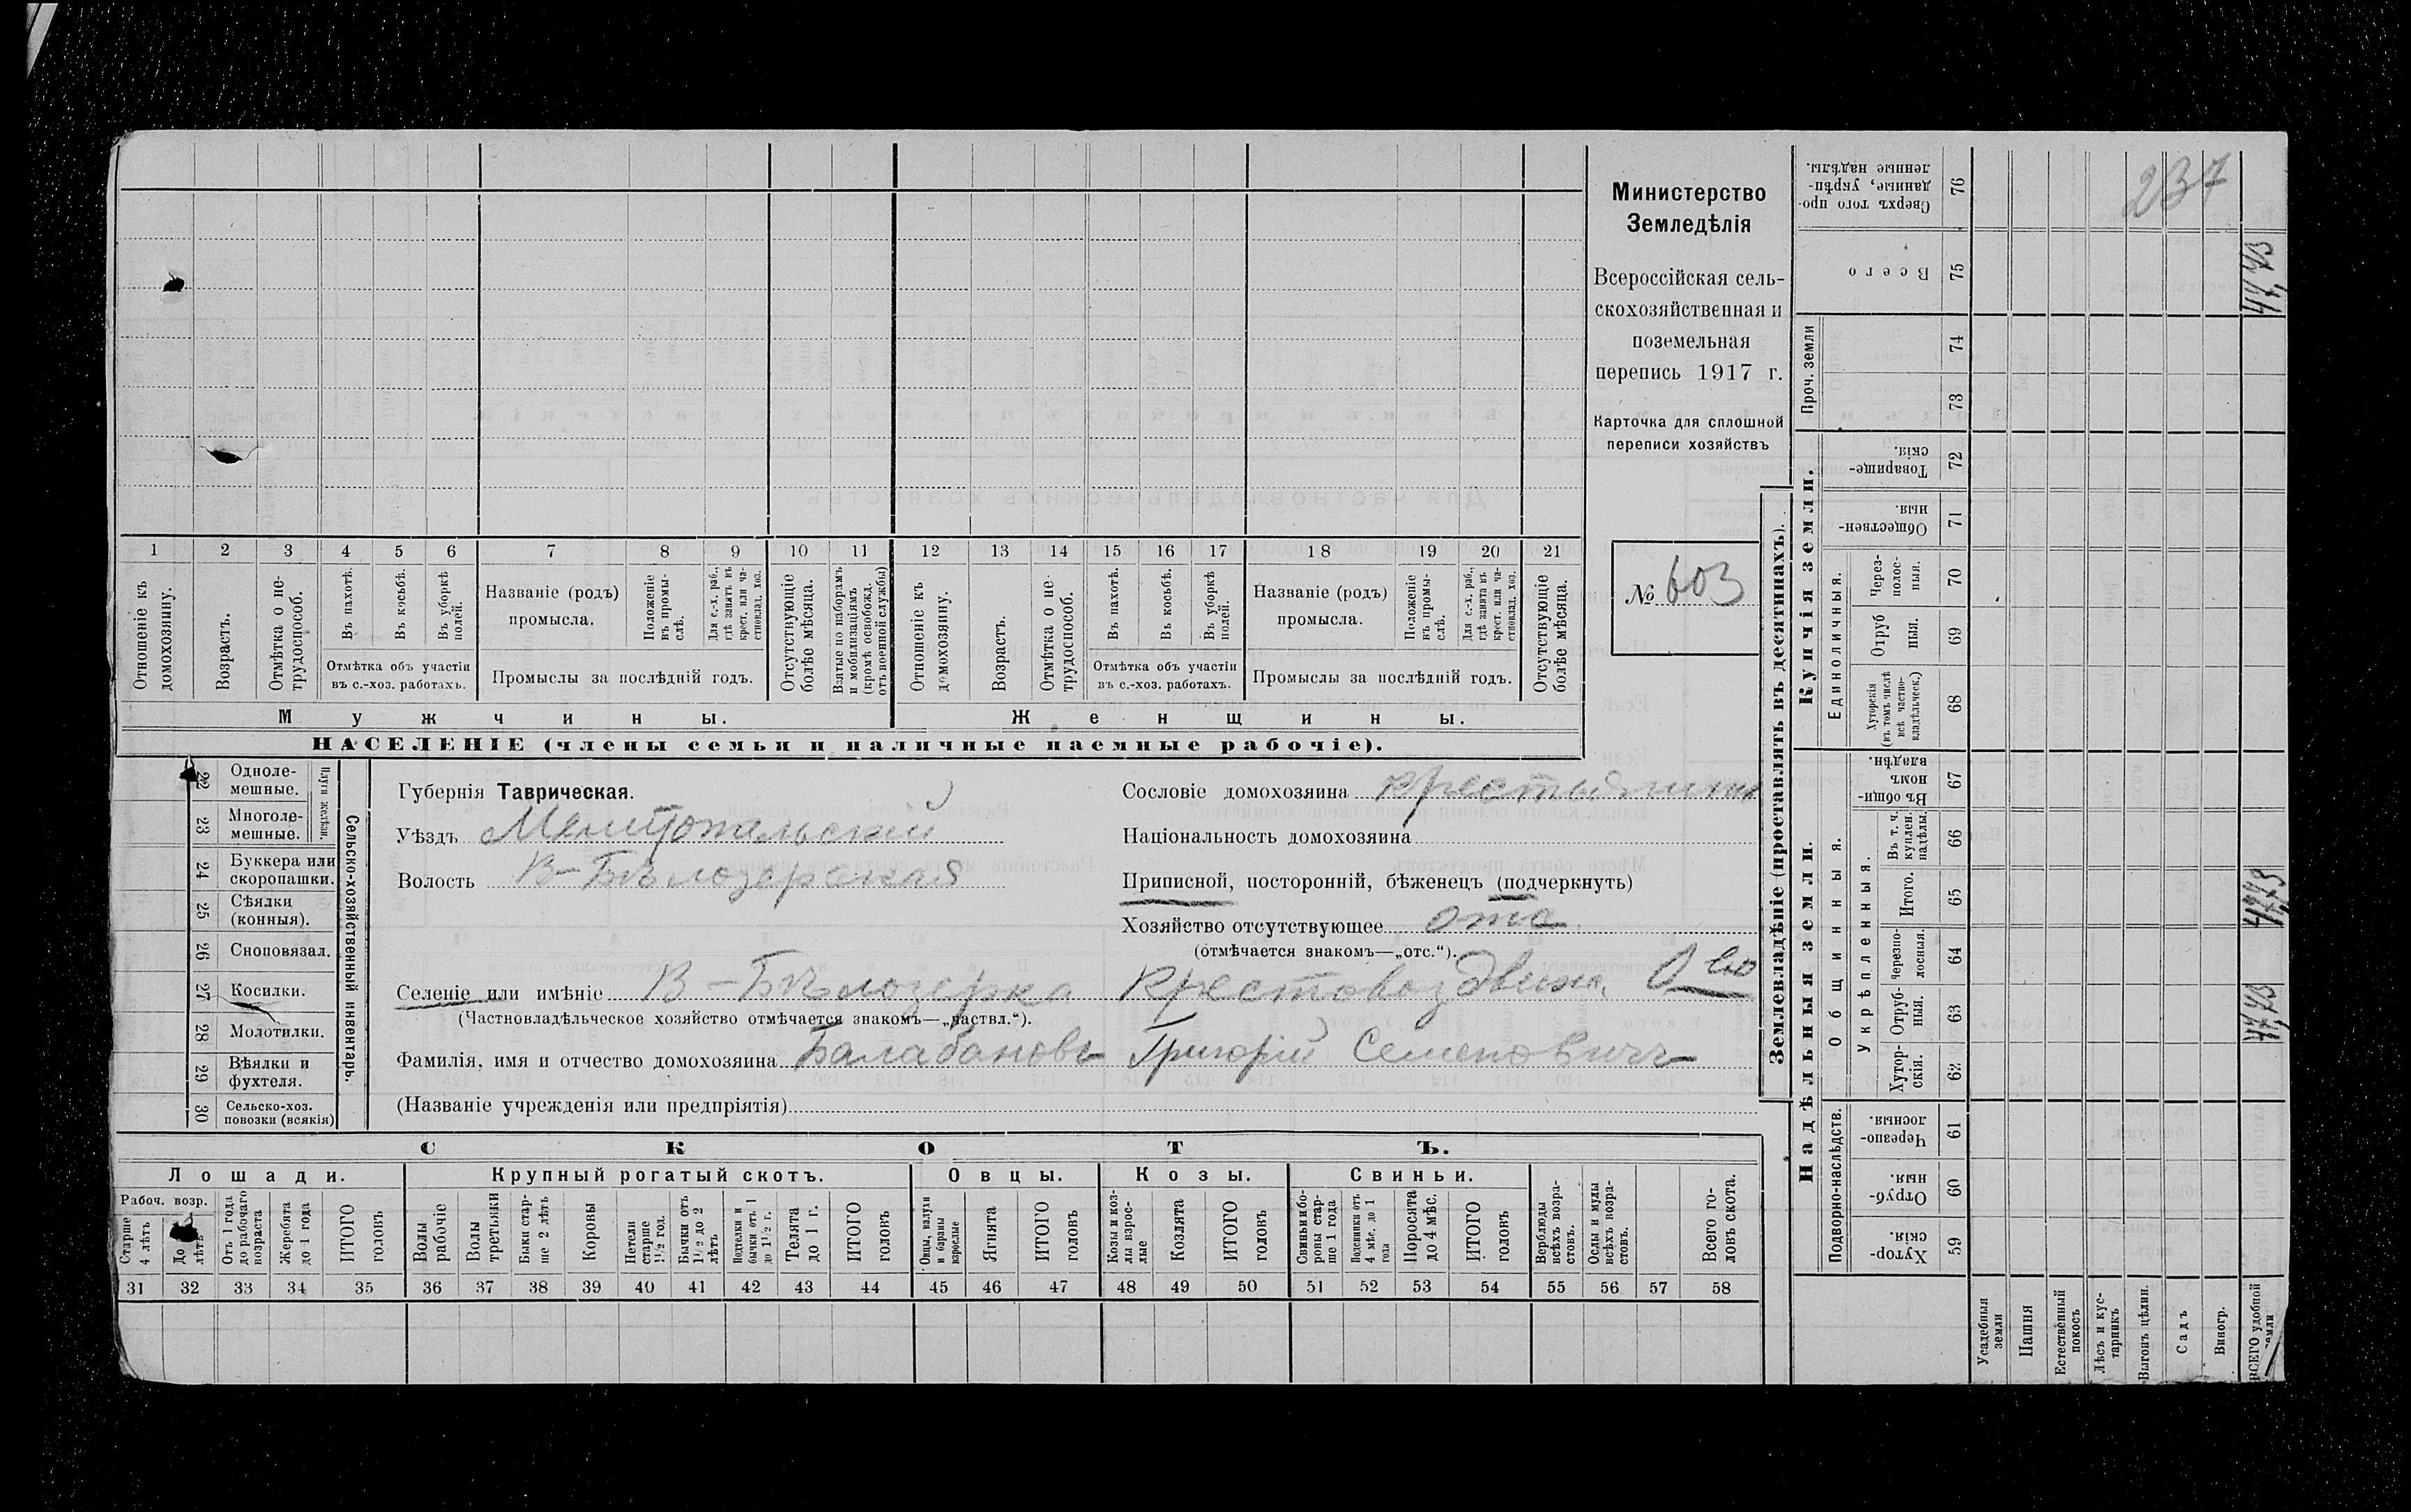 237
Министерство
Земледѣлія
Всероссійская сель-
скохозяйственная и
поземельная
перепись 1917 г.
Карточка для сплошной
переписи хозяйствъ
№ 603
1 2 3 4 5 6 7 8 9 10 11 12 13 14 15 16 17 18 19 20 21
Отношеніе къ домохозяину.
Возрастъ.
Отмѣтка о не-трудоспособ.
Въ пахотѣ.
Въ косьбѣ.
Въ уборкѣ полей.
Отмѣтка объ участіи
въ с.-хоз. работахъ.
Названіе (родъ)
промысла.
Положеніе въ промы-слѣ.
Для с.-х. раб., гдѣ занятъ въ крест. или ча-стновлад. хоз.
Промыслы за послѣдній годъ.
Отсутствующіе болѣе мѣсяца.
Взятые по наборамъ и мобилизаціямъ (кромѣ освобожд. отъ военной службы)
Отношеніе къ домохозяину.
Возрастъ.
Отмѣтка о не-трудоспособ.
Въ пахотѣ.
Въ косьбѣ.
Въ уборкѣ полей.
Отмѣтка объ участіи
въ с.-хоз. работахъ.
Названіе (родъ)
промысла.
Положеніе въ промы-слѣ.
Для с.-х. раб., гдѣ занята въ крест. или ча-стновлад. хоз.
Промыслы за послѣдній годъ.
Отсутствующіе болѣе мѣсяца.
Мужчины.
Женщины.
НАСЕЛЕНІЕ (члены семьи и наличные наемные рабочіе).
22 Одноле-мешные.
23 Многоле-мешные.
24 Буккера или скоропашки.
25 Сѣялки (конныя).
26 Сноповязал.
27 Косилки.
28 Молотилки.
29 Вѣялки и фухтеля.
30 Сельско-хоз. повозки (всякія)
Сельско-хозяйственный инвентарь.
Губернія Таврическая.
Уѣздъ Мелитопольскій
Волость В-Бѣлозерская
Сословіе домохозяина крестьянинъ
Національность домохозяина
Приписной, посторонній, бѣженецъ (подчеркнуть)
Хозяйство отсутствующее отс.
(отмѣчается знакомъ—„отс.“).
Селеніе или имѣніе В-Бѣлозерка Крестовоздвиж.
(Частновладѣльческое хозяйство отмѣчается знакомъ—„частвл.“).
Фамилія, имя и отчество домохозяина Балабановъ Григорій Семеновичъ
(Названіе учрежденія или предпріятія)
СКОТЪ.
Лошади.
Крупный рогатый скотъ.
Овцы.
Козы.
Свиньи.
Рабоч. возр.
Старше 4 лѣтъ
До лѣтъ
Отъ 1 года до рабочаго возраста
Жеребята до 1 года
ИТОГО головъ
Волы рабочіе
Волы третьяки
Быки стар-ше 2 лѣтъ
Коровы
Нетели старше 1½ год.
Бычки отъ 1½ до 2 лѣтъ
Подтелки и бычки отъ 1 до 1½ г.
Телята до 1 г.
ИТОГО головъ
Овцы, валухи и бараны взрослые
Ягнята
ИТОГО головъ
Козы и коз-лы взрос-лые
Козлята
ИТОГО головъ
Свиньи и бо-ровы стар-ше 1 года
Подсвинки отъ 4 мѣс. до 1 года
Поросята до 4 мѣс.
ИТОГО головъ
Верблюды всѣхъ возра-стовъ.
Ослы и мулы всѣхъ возра-стовъ.
Всего го-ловъ скота.
31 32 33 34 35 36 37 38 39 40 41 42 43 44 45 46 47 48 49 50 51 52 53 54 55 56 57 58
Землевладѣніе (проставлять въ десятинахъ).
Купчія земли.
Надѣльныя земли.
Сверхъ того про-данные, укрѣп-ленные надѣлы. 76
Всего 75
Проч. земли 74 73
Товарище-скія. 72
Обществен-ныя. 71
Единоличныя.
Через-полос-ныя. 70
Отруб ныя. 69
Хуторскія (въ томъ числѣ всѣ частно-владѣльческ.) 68
Общинныя.
Въ общи-номъ владѣн. 67
Укрѣпленныя.
Въ т. ч. куплен. надѣлы. 66
Итого. 65
Черезпо-лосныя. 64
Отруб-ныя. 63
Хутор-скія. 62
Подворно-наслѣдств.
Черезпо-лосныя. 61
Отруб-ныя. 60
Хутор-скія. 59
Усадебныя земли
Пашня
Естественный покосъ
Лѣсъ и кус-тарникъ
Выгонъ цѣлин.
Садъ
Виногр.
ВСЕГО удобной земли